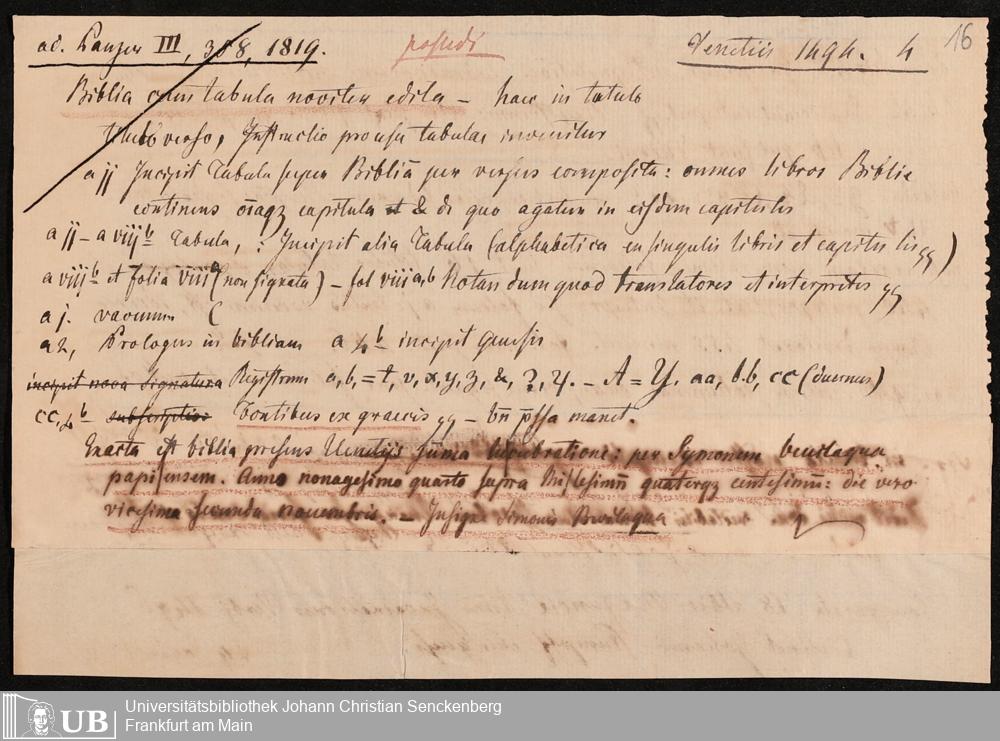 ad. Panzer III, 358, 1819. possedi Venetiis 1494. 4 16
Biblia cum tabula noviter edita – haec in titulo
verso, Instructio pro usu tabulae invenitur
a ij Incipit Tabula super Biblia per versus composita: omnes libros Biblie
continens & de quo agatur in eisdem capitulis
a ij – a viij b Tabula, : Incipit alia Tabula (alphabetica ex singulis libris et capitulis
a viij b et folia viii (non signata) – fol viii a, b Notandum quod translatores et interpretes
a j. vacuum (
a 2, Prologus in bibliam a 4 b incipit genesis
incipit nova signatura Registrum a, b, = t, v, x, y, z, &, – A = Y. aa, bb, cc (duernus)
cc, 4 b – subscriptio: Fontibus ex graecis – manet.
Exacta est biblia presens Uenetijs suma lucubratione: per Symonem beuilaqua
papiensem. Anno nonagesimo quarto supra Millesimum quaterqz centesimum: die vero
vicesima secunda nouembris. – Insigne Simonis Bevilaqua
UB
Universitätsbibliothek Johann Christian Senckenberg
Frankfurt am Main